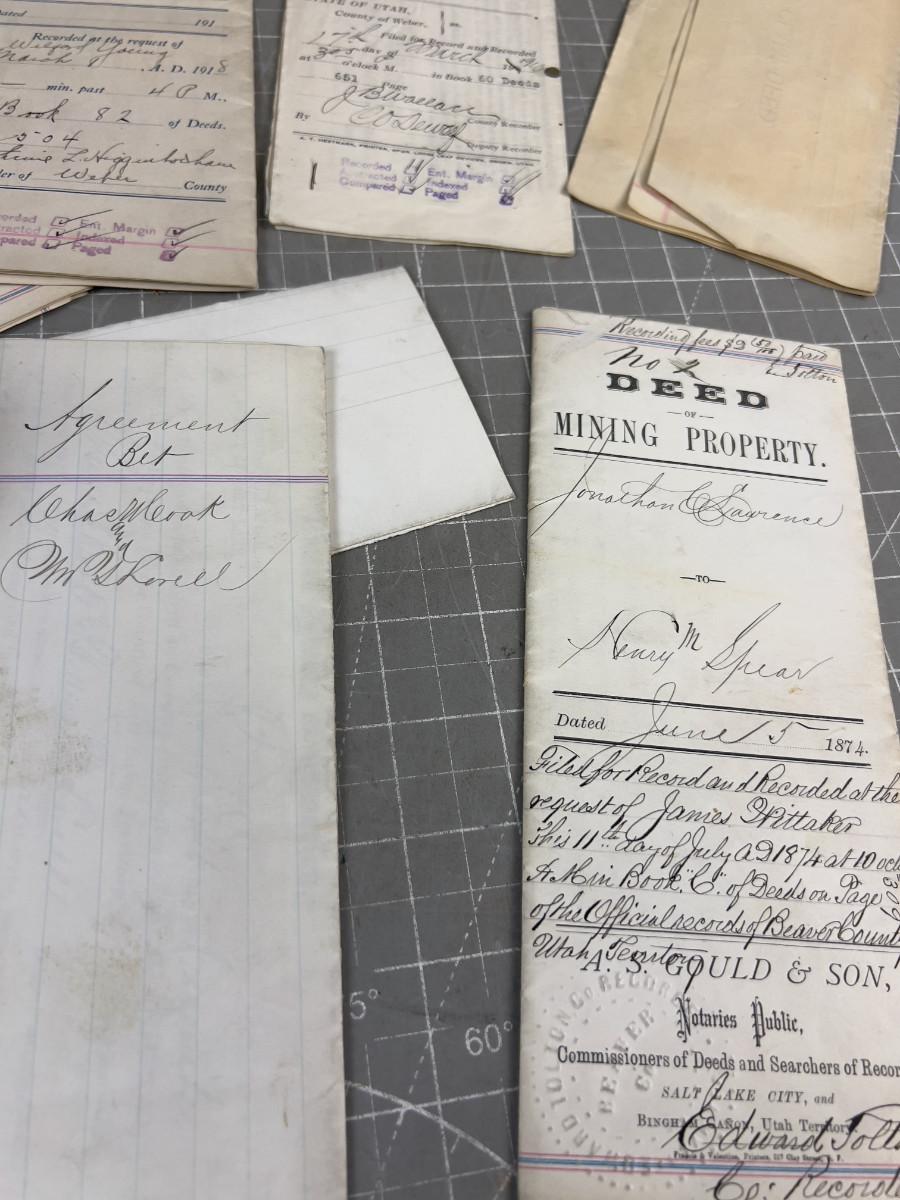 Dated 191
Recorded at the request of
Wilford Young
March A. D. 1918
min. past 4 P M.,
Book 82 of Deeds.
504
L. Higginbotham
of Weber County
Ent. Margin
Indexed
Paged
STATE OF UTAH,
County of Weber, ss.
Filed for Record and Recorded
27th day of March
at 305 o'clock M. in Book 60 Deeds
651 Page
County Recorder
By Deputy Recorder
Recorded Ent. Margin
Abstracted Indexed
Compared Paged
Agreement
Bet
Chas W Cook
and
Wm Y Lovell
Recording fees $9 (50/100) paid
E. Tolton
No 2
DEED
—OF—
MINING PROPERTY.
Jonathan C Lawrence
—TO—
Henry M Spear
Dated June 5 1874.
Filed for Record and Recorded at the
request of James Whittaker
this 11th day of July A D 1874 at 10 oclo
A M in Book "C" of Deeds on Page
of the Official records of Beaver County
Utah Territory
A. S. GOULD & SON,
Notaries Public,
Commissioners of Deeds and Searchers of Recor
SALT LAKE CITY, and
BINGHAM CAÑON, Utah Territory.
Edward Tolto
Co. Recorde
BEAVER
CO
5°
60°